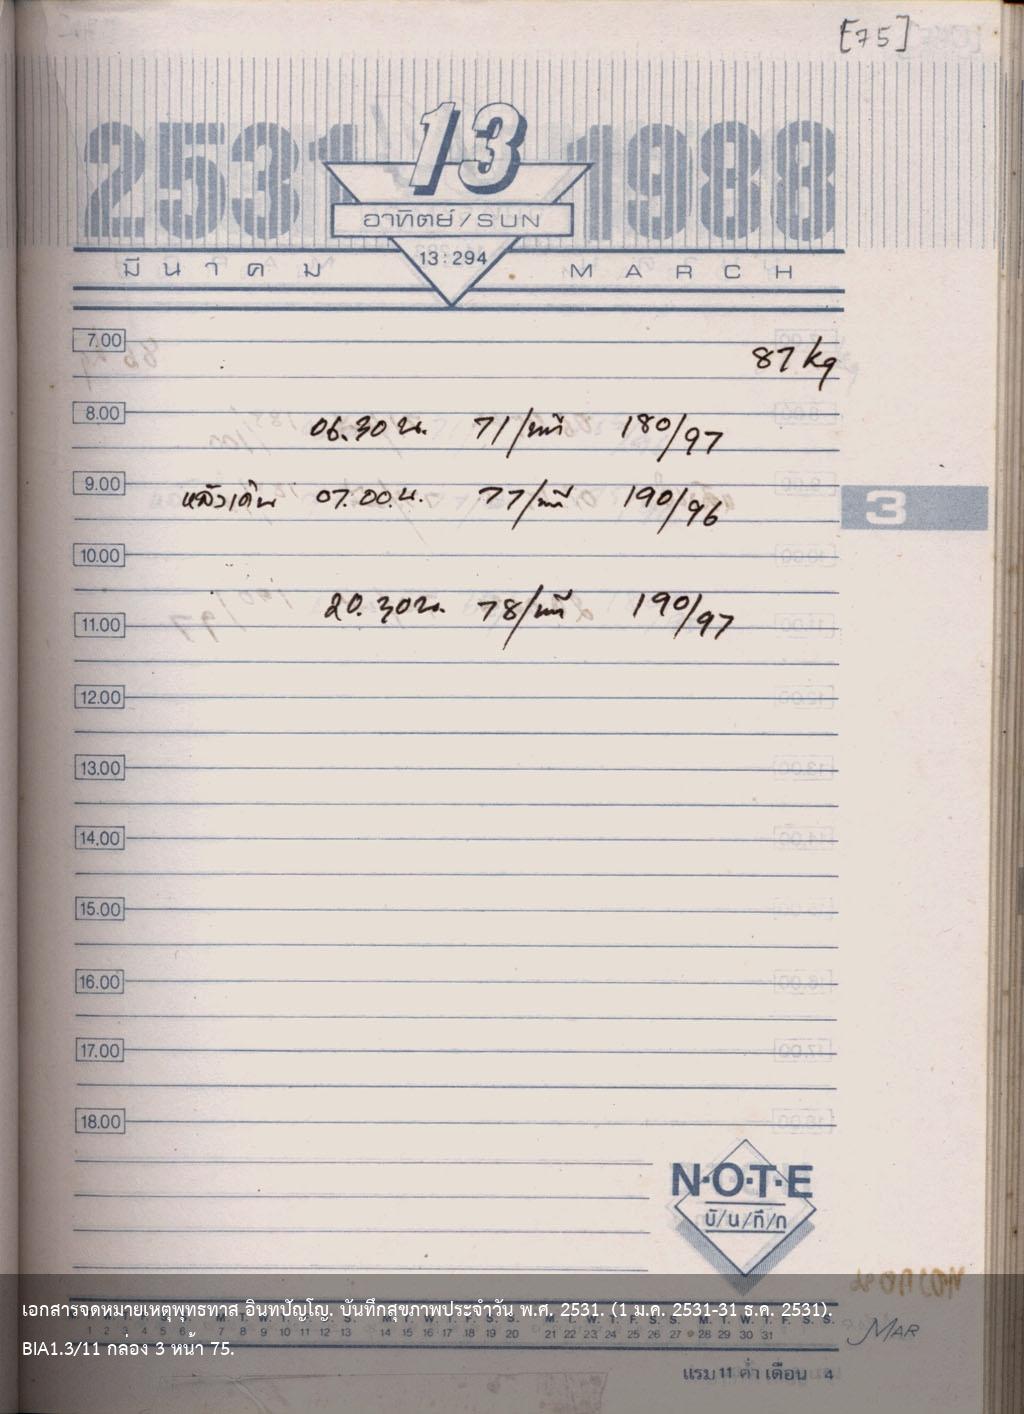 [75]
2531 13 1988
อาทิตย์/SUN
13:294
มีนาคม MARCH
7.00
87 kg
8.00
06.30 น. 71/นาที 180/97
9.00
หลังเดิน 07.00 น. 77/นาที 190/96
3
10.00
20.30 น. 78/นาที 190/97
11.00
12.00
13.00
14.00
15.00
16.00
17.00
18.00
N·O·T·E
บั/น/ทึ/ก
เอกสารจดหมายเหตุพุทธทาส อินทปัญโญ. บันทึกสุขภาพประจำวัน พ.ศ. 2531. (1 ม.ค. 2531-31 ธ.ค. 2531).
1 2 3 4 5 6 7 8 9 10 11 12 13 14 15 16 17 18 19 20 21 22 23 24 25 26 27 28 29 30 31 MAR
BIA1.3/11 กล่อง 3 หน้า 75.
แรม 11 ค่ำ เดือน 4